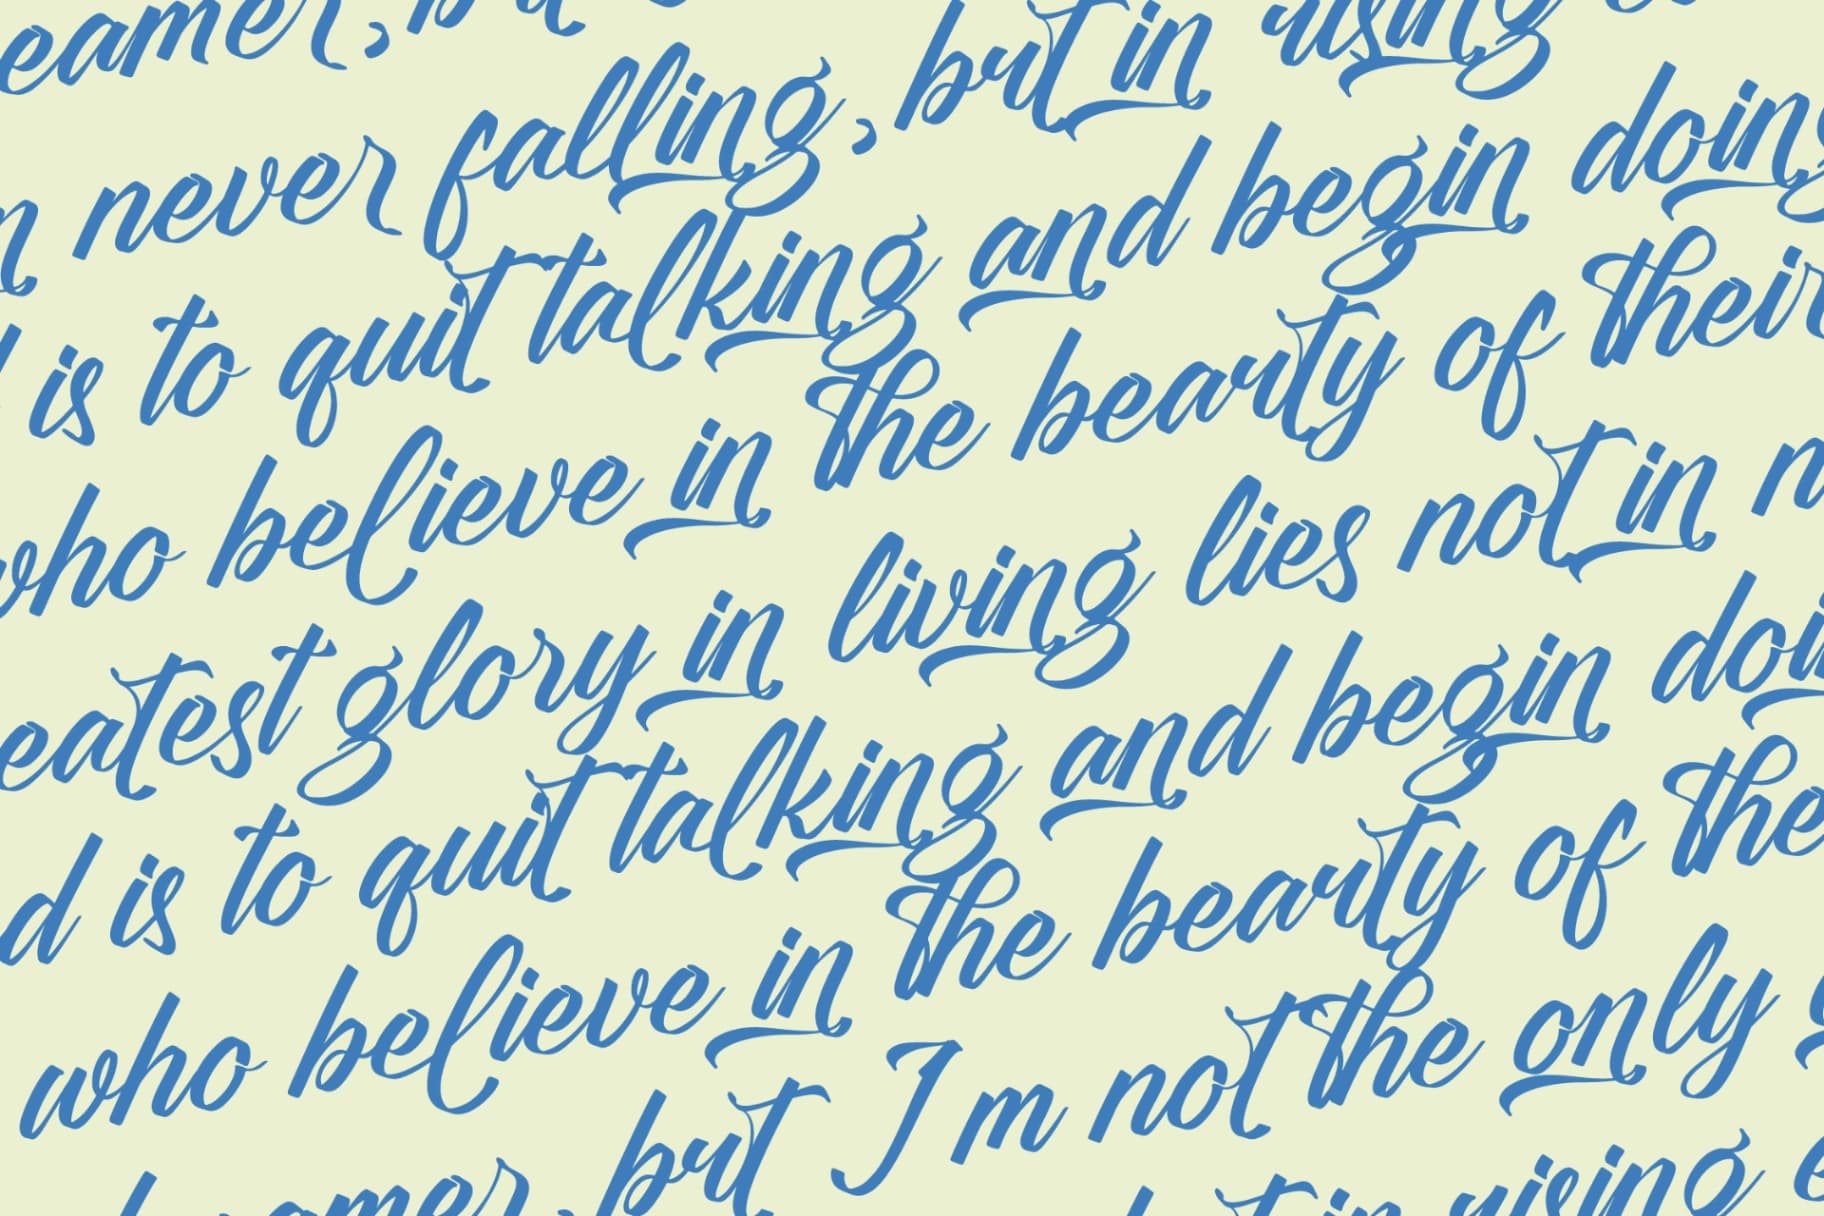 eamer, bu
n never falling, but in rising
is to quit talking and begin doing
who believe in the beauty of their
eatest glory in living lies not in
d is to quit talking and begin doin
who believe in the beauty of the
eamer, but I m not the only
but in rising